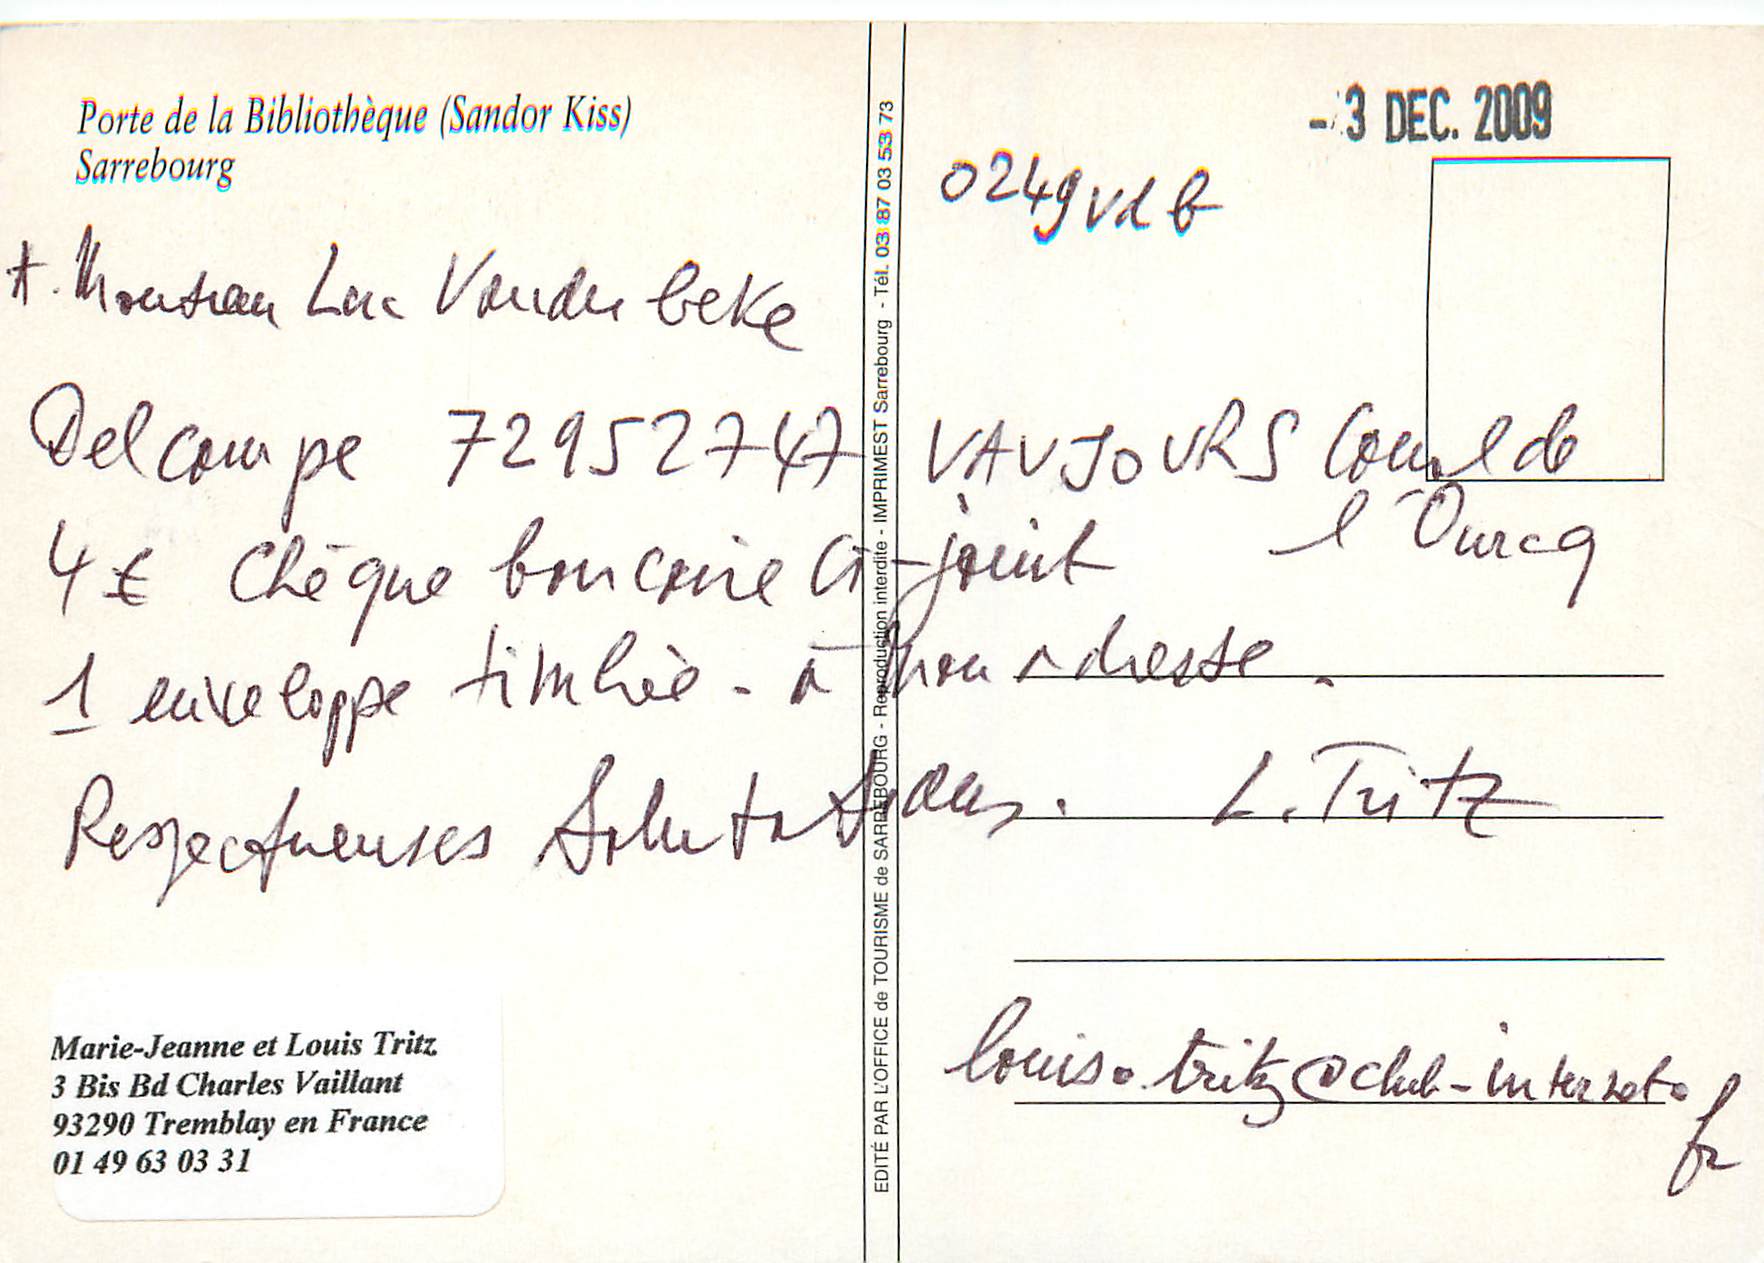 Porte de la Bibliothèque (Sandor Kiss)
Sarrebourg
- 3 DEC. 2009
0249 vd b
A. Monsieur Luc Vander beke
Delcampe 72952747 VAUJOURS Canal de
l'Ourcq
4 € Chèque bancaire Ci-joint
1 enveloppe timbrée - à mon adresse.
Respectueuses Salutations. L. Tritz
Marie-Jeanne et Louis Tritz
3 Bis Bd Charles Vaillant
93290 Tremblay en France
01 49 63 03 31
louis.tritz@club-internet.
fr
EDITÉ PAR L'OFFICE de TOURISME de SARREBOURG - Reproduction interdite - IMPRIMEST Sarrebourg - Tél. 03 87 03 53 73